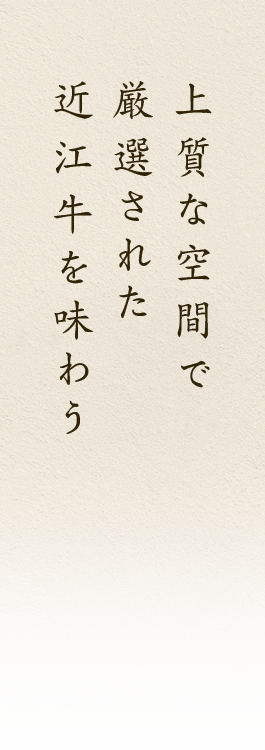 上質な空間で
厳選された
近江牛を味わう